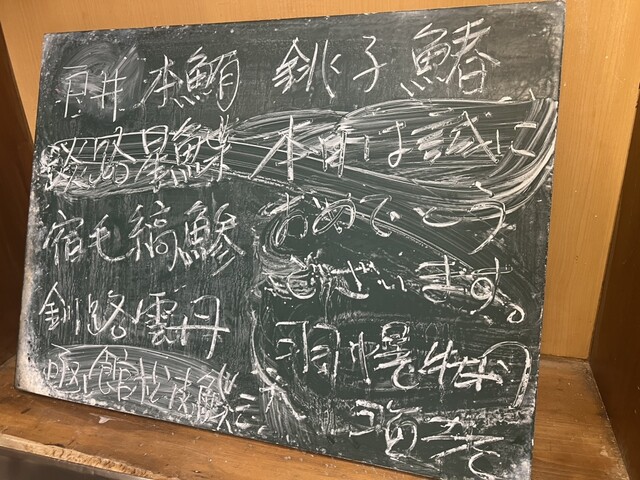 本鮪 銚子 鰆
淡路 星鰈
本日は誠に
おめでとう
ございます。
宿毛 縞鯵
釧路 雲丹
函館
羽幌 牡丹
海老